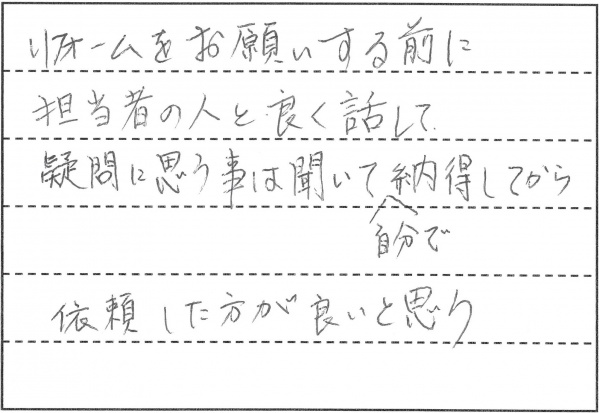 リフォームをお願いする前に
担当者の人と良く話して
疑問に思う事は聞いて納得してから
自分で
依頼した方が良いと思う